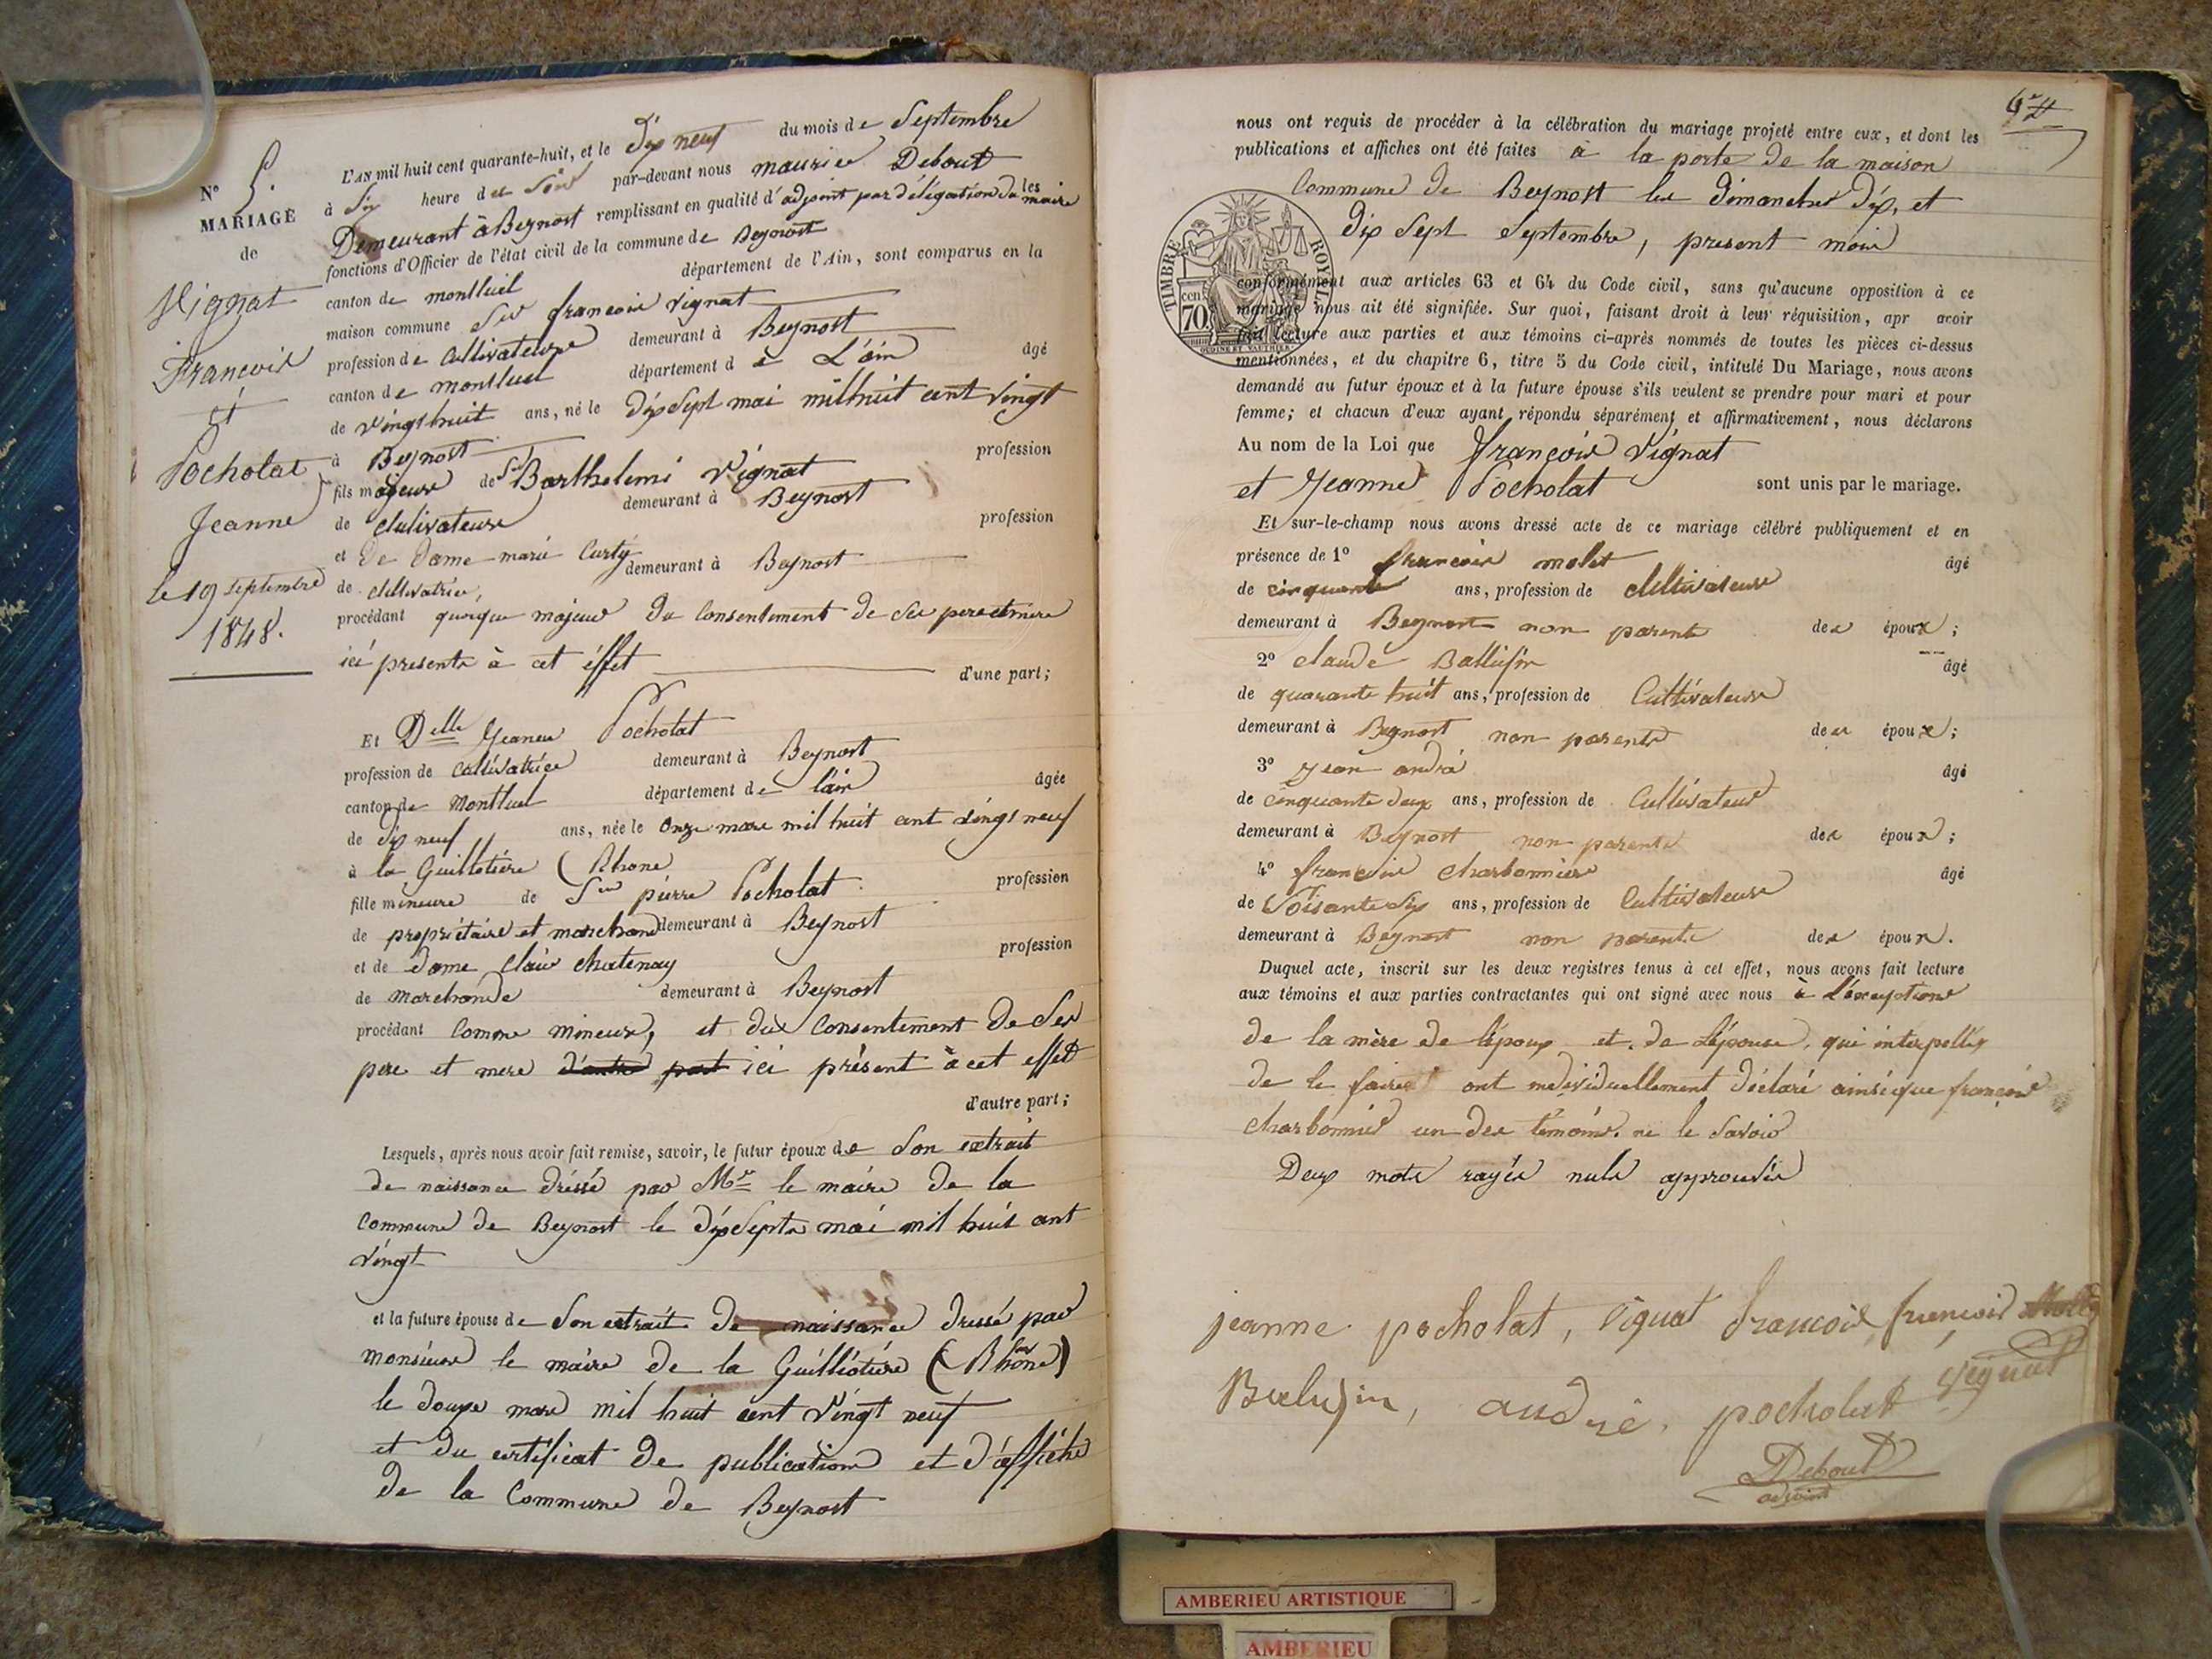 N° 5.
MARIAGE
de
Vignat
François
et
Pocholat
Jeanne
le 19 septembre
1848.
L'AN mil huit cent quarante-huit, et le dix neuf du mois de Septembre
à Six heure du Soir par-devant nous maurice Debout
Demeurant à Beynost remplissant en qualité d'adjoint par délégation du maire les
fonctions d'Officier de l'état civil de la commune de Beynost
canton de montluel département de l'Ain, sont comparus en la
maison commune Sieur françois Vignat
profession de Cultivateur demeurant à Beynost
canton de montluel département de L'ain âgé
de vingt huit ans, né le dix Sept mai mil huit cent vingt
à Beynost
fils majeur de Sr Barthelemi Vignat profession
de Cultivateur demeurant à Beynost
et De Dame marie Curty profession
de Cultivatrice, demeurant à Beynost
procédant quoique majeur du Consentement de Ses pere et mere
ici presents à cet éffet d'une part;
Et Delle Jeanne Pocholat
profession de Cultivatrice demeurant à Beynost
canton de Montluel département de l'ain âgée
de dix neuf ans, née le onze mars mil huit cent vingt neuf
à la Guillotière (Rhone)
fille mineure de Sieur pierre Pocholat profession
de propriétaire et marchand demeurant à Beynost
et de Dame Claire Chatenay profession
de Marchande demeurant à Beynost
procédant Comme mineure, et du Consentement De Ses
pere et mere d'autre part ici présent à cet effet
d'autre part;
Lesquels, après nous avoir fait remise, savoir, le futur époux de Son extrait
de naissance dréssé par Mr le maire De la
Commune de Beynost le dix Septe mai mil huit cent
vingt
et la future épouse de Son extrait De naissance dressé par
monsieur le maire de la Guilliotière (Rhône)
le douze mars mil huit cent vingt neuf
et du certificat De publication et d'affiche
De la Commune de Beynost
nous ont requis de procéder à la célébration du mariage projeté entre eux, et dont les
publications et affiches ont été faites à la porte de la maison
Commune de Beynost les Dimanches dix, et
dix Sept Septembre, present mois
TIMBRE ROYAL
cen. 70
OUDINE ET VAUTHIER
conformément aux articles 63 et 64 du Code civil, sans qu'aucune opposition à ce
mariage nous ait été signifiée. Sur quoi, faisant droit à leur réquisition, apr avoir
fait lecture aux parties et aux témoins ci-après nommés de toutes les pièces ci-dessus
mentionnées, et du chapitre 6, titre 5 du Code civil, intitulé Du Mariage, nous avons
demandé au futur époux et à la future épouse s'ils veulent se prendre pour mari et pour
femme; et chacun d'eux ayant répondu séparément et affirmativement, nous déclarons
Au nom de la Loi que françois Vignat
et Jeanne Pocholat sont unis par le mariage.
Et sur-le-champ nous avons dressé acte de ce mariage célébré publiquement et en
présence de 1° francois molet âgé
de cinquante ans, profession de Cultivateur
demeurant à Beynost non parents des époux;
2° claude Ballufin âgé
de quarante huit ans, profession de Cultivateur
demeurant à Beynost non parents des époux;
3° Jean andré âgé
de cinquante deux ans, profession de Cultivateur
demeurant à Beynost non parents des époux;
4° francois Charbonnier âgé
de Soisante Six ans, profession de Cultivateur
demeurant à Beynost non parents des époux.
Duquel acte, inscrit sur les deux registres tenus à cet effet, nous avons fait lecture
aux témoins et aux parties contractantes qui ont signé avec nous à L'exception
de la mère de l'époux et de L'épouse, qui interpellés
de le faire ont individuellement déclaré ainsi que françois
Charbonnier un des témoins. ne le Savoir
Deux mots rayés nuls approuvés
jeanne pocholat, vignat francois francois
andré, pocholat Vignat
Debout
adjoint
AMBERIEU ARTISTIQUE
AMBERIEU